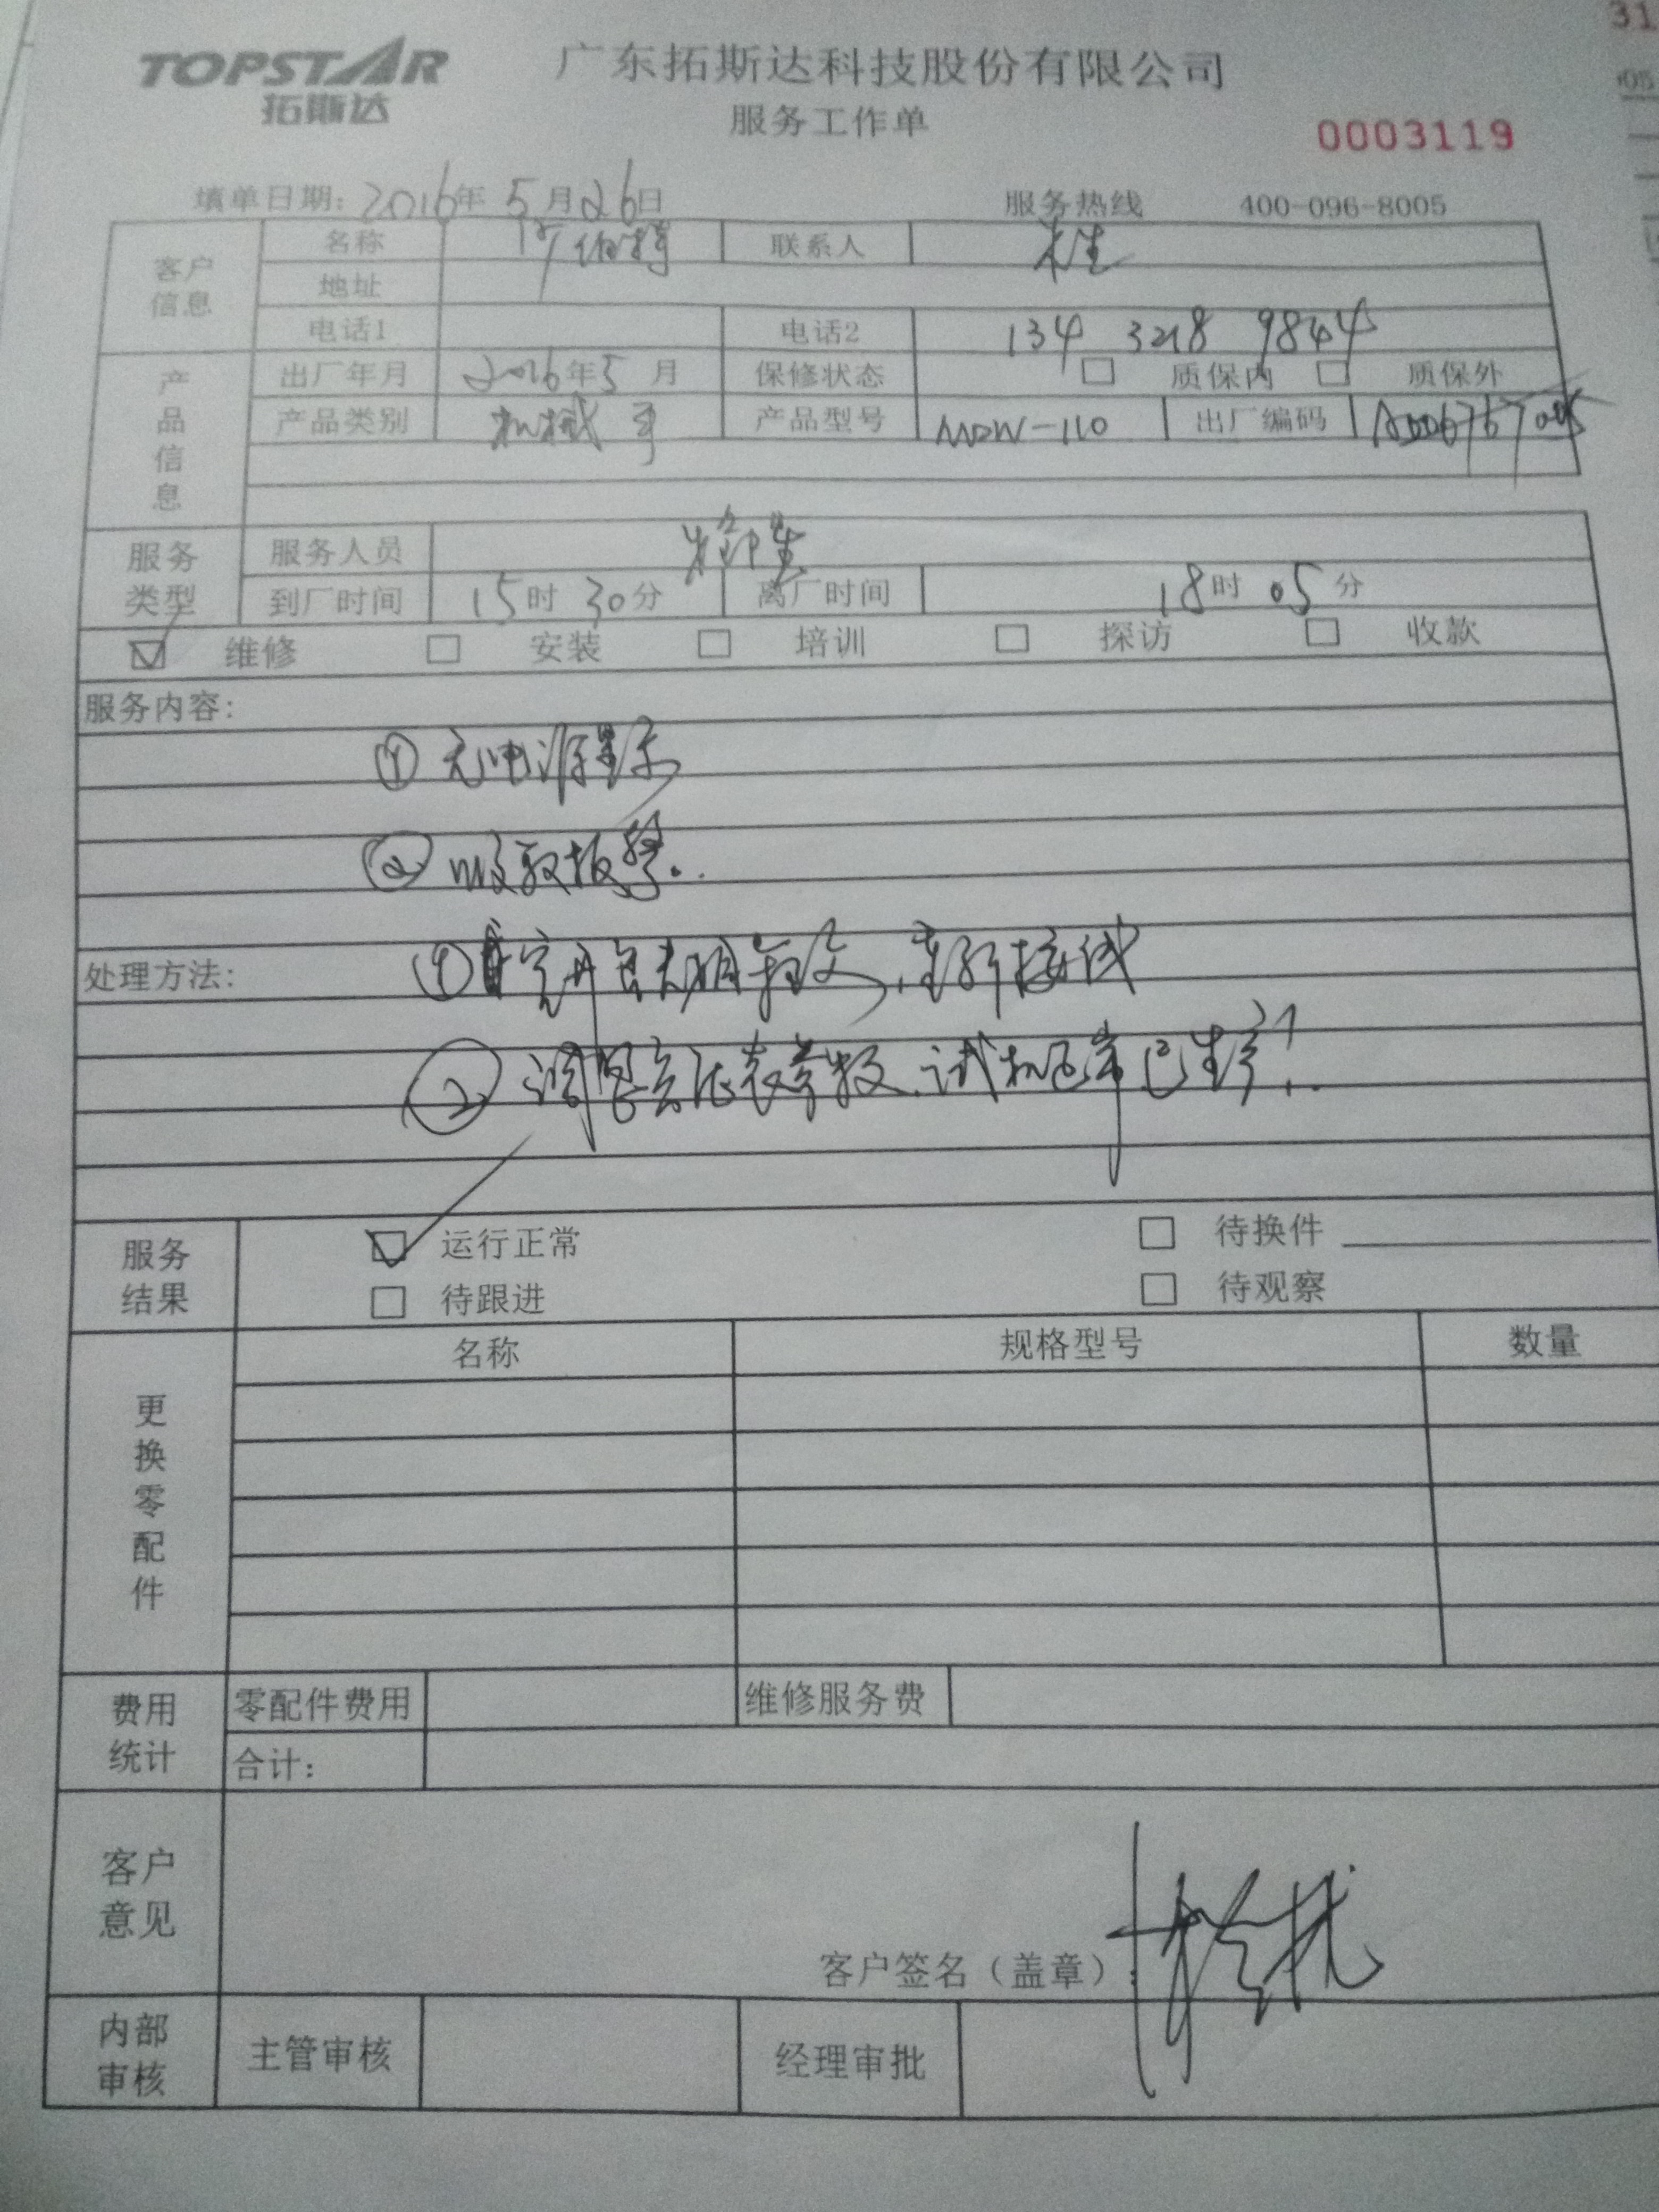 TOPSTAR
拓斯达
广东拓斯达科技股份有限公司
服务工作单
0003119
填单日期: 2016年 5月26日
服务热线 400-096-8005
客户信息
名称
联系人
地址
电话1
电话2 134 3218 9844
产品信息
出厂年月 2016年5月
保修状态 □ 质保内 □ 质保外
产品类别 机械手
产品型号 MDW-110
出厂编码
服务类型
服务人员
到厂时间 15时 30分
离厂时间 18时 05分
☑ 维修 □ 安装 □ 培训 □ 探访 □ 收款
服务内容:
① 无电源显示
② 吸取报警..
处理方法: ①
接线
② 调真空表参数, 试机正常已生产!.
服务结果
☑ 运行正常 □ 待换件
□ 待跟进 □ 待观察
更换零配件
名称 规格型号 数量
费用统计
零配件费用 维修服务费
合计:
客户意见
客户签名(盖章):
内部审核
主管审核 经理审批